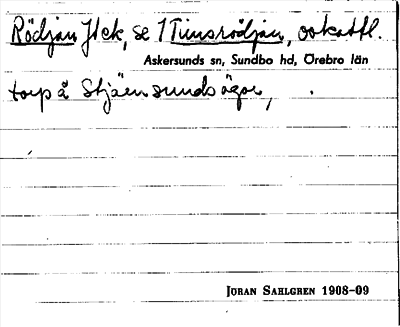 Rödjan Jtck, se 1 Timsrödjan, ookattl.
Askersunds sn, Sundbo hd, Örebro län
torp å Stjärnsunds ägor,
JÖRAN SAHLGREN 1908-09